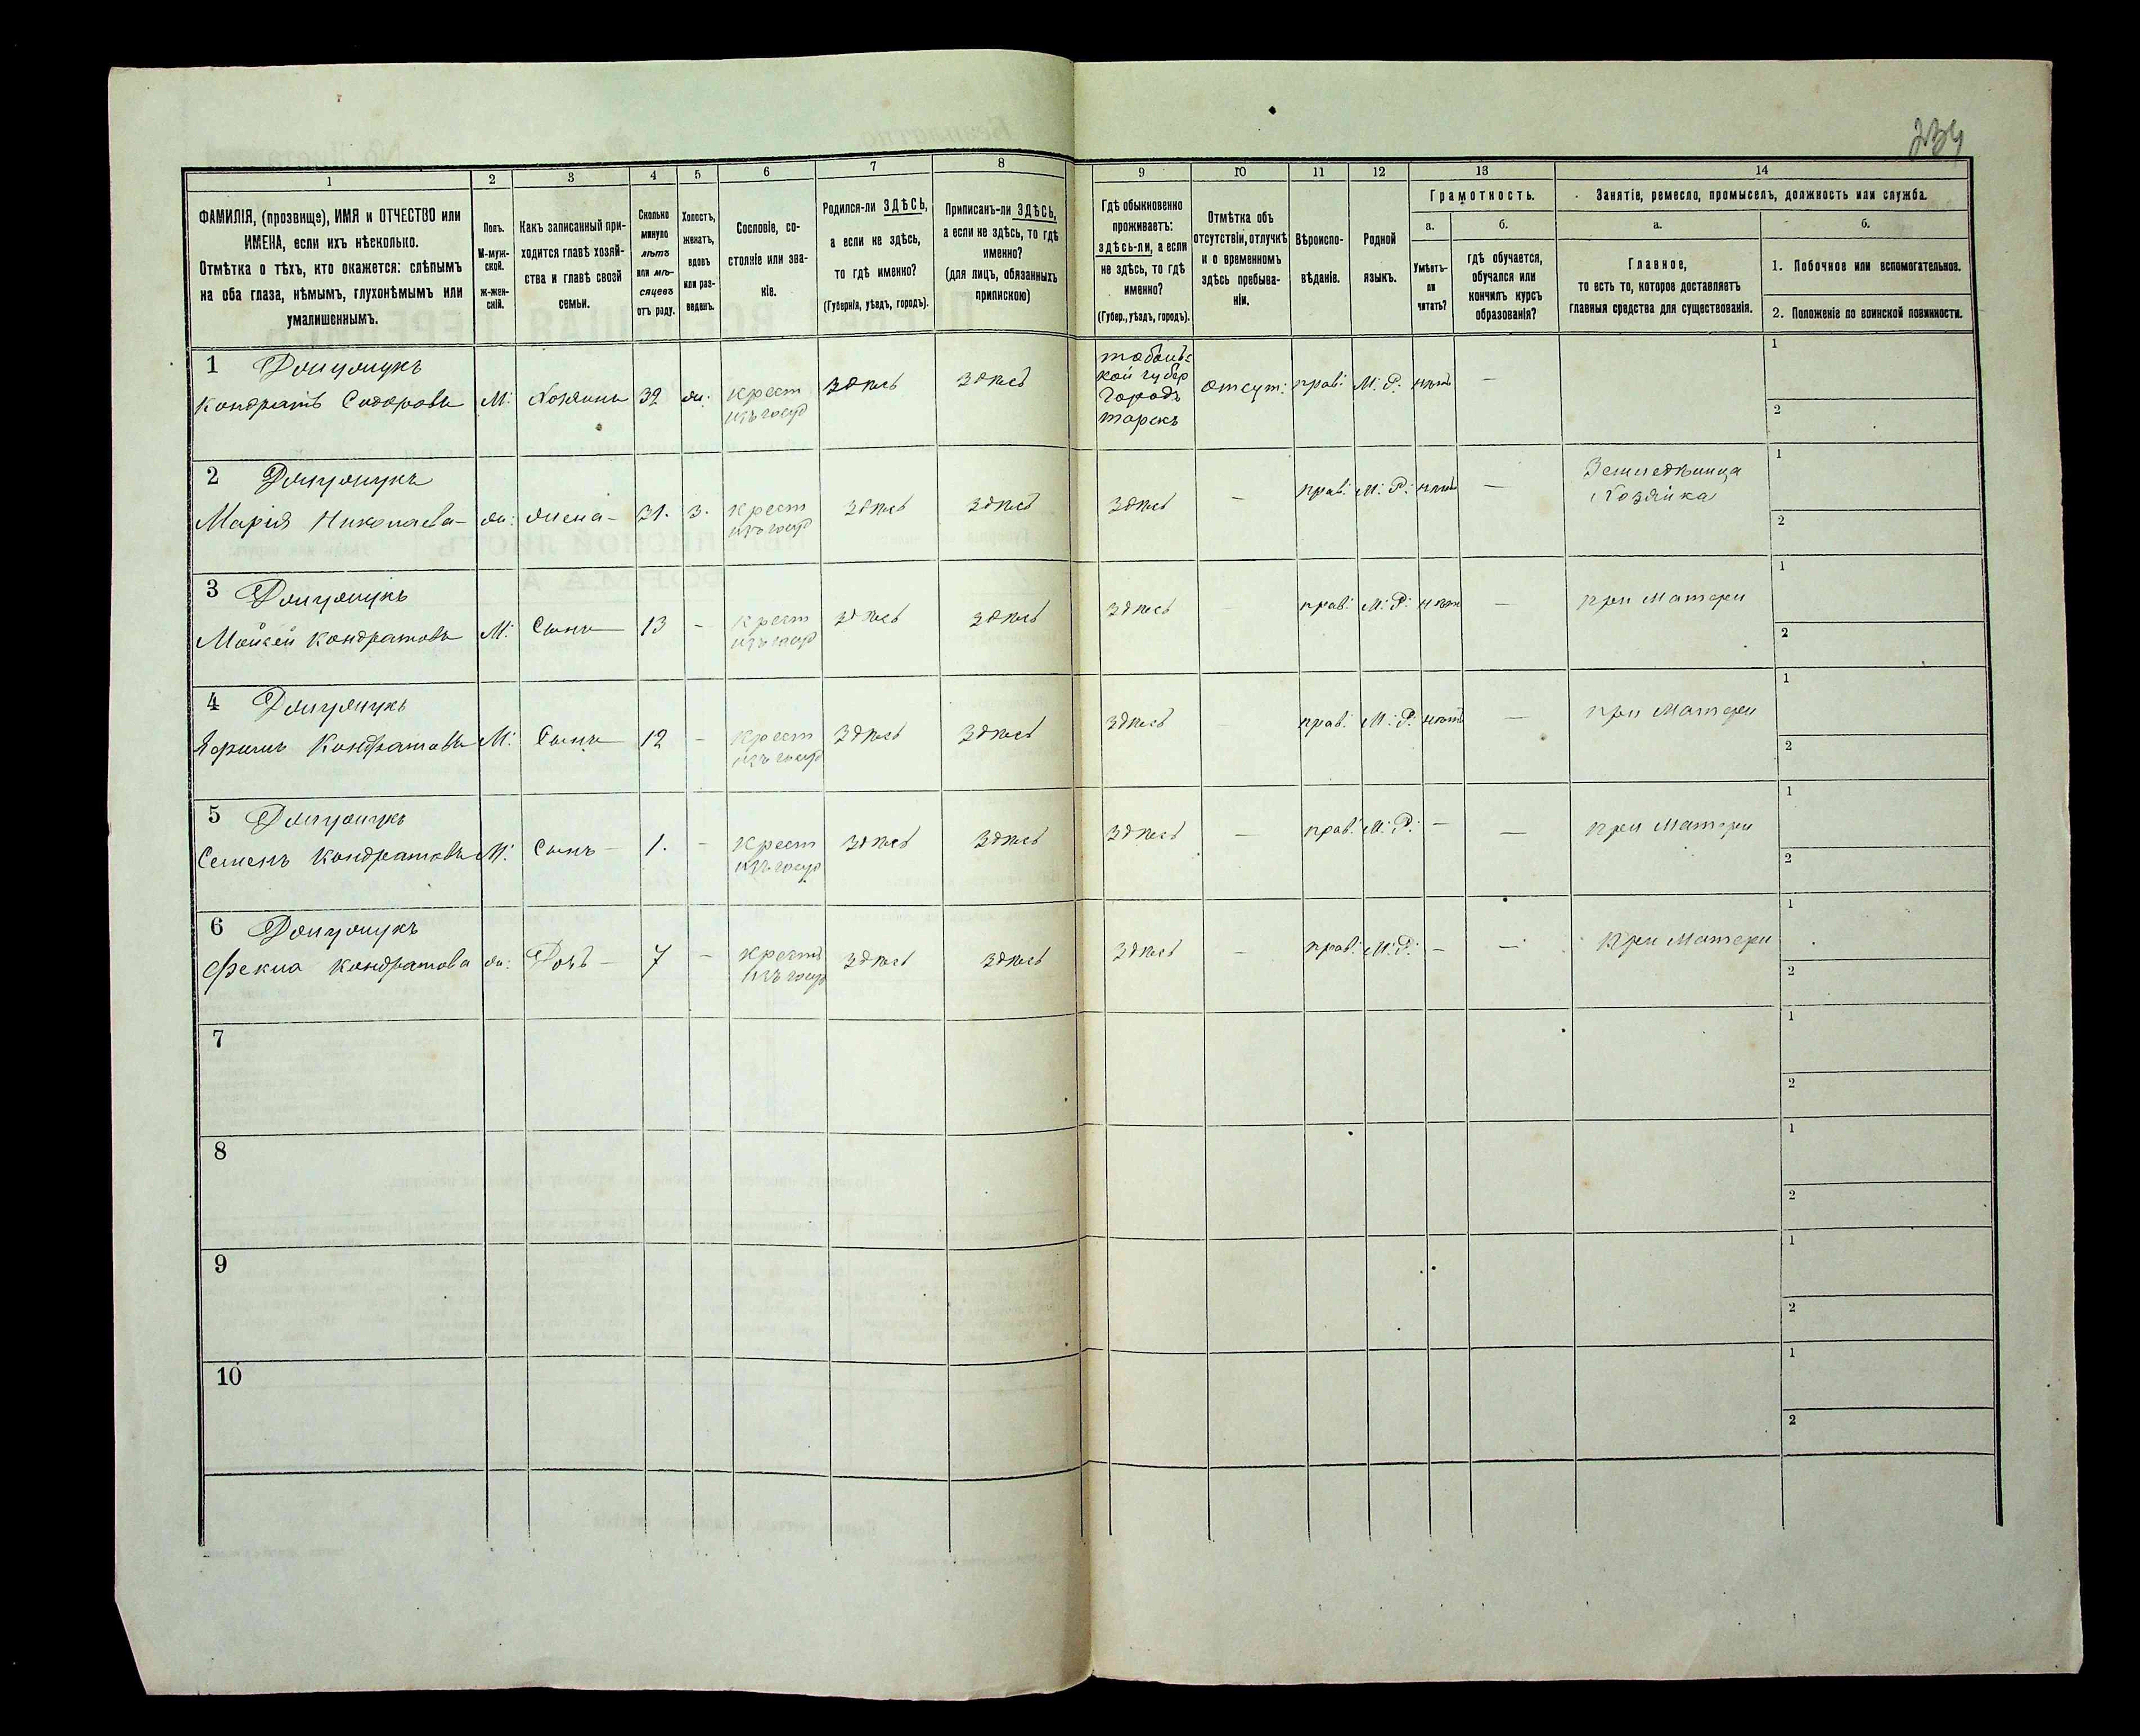 234
1
2
3
4
5
6
7
8
9
10
11
12
13
14
ФАМИЛІЯ, (прозвище), ИМЯ и ОТЧЕСТВО или
ИМЕНА, если ихъ нѣсколько.
Отмѣтка о тѣхъ, кто окажется: слѣпымъ
на оба глаза, нѣмымъ, глухонѣмымъ или
умалишеннымъ.
Полъ.
М-муж-
ской.
Ж-жен-
скій.
Какъ записанный при-
ходится главѣ хозяй-
ства и главѣ своей
семьи.
Сколько
минуло
лѣтъ
или мѣ-
сяцевъ
отъ роду.
Холостъ,
женатъ,
вдовъ
или раз-
веденъ.
Сословіе, со-
стояніе или зва-
ніе.
Родился-ли ЗДѢСЬ,
а если не здѣсь,
то гдѣ именно?
(Губернія, уѣздъ, городъ).
Приписанъ-ли ЗДѢСЬ,
а если не здѣсь, то гдѣ
именно?
(для лицъ, обязанныхъ
припискою)
Гдѣ обыкновенно
проживаетъ:
здѣсь-ли, а если
не здѣсь, то гдѣ
именно?
(Губер., уѣздъ, городъ).
Отмѣтка объ
отсутствіи, отлучкѣ
и о временномъ
здѣсь пребыва-
ніи.
Вѣроиспо-
вѣданіе.
Родной
языкъ.
Грамотность.
а.
Умѣетъ-
ли
читать?
б.
гдѣ обучается,
обучался или
кончилъ курсъ
образованія?
Занятіе, ремесло, промыселъ, должность или служба.
а.
Главное,
то есть то, которое доставляетъ
главныя средства для существованія.
б.
1. Побочное или вспомогательное.
2. Положеніе по воинской повинности.
1
Кондратъ Сидоровъ М. Хозяинъ 32 ж. Крест
изъ госуд
здѣсь здѣсь
Тобольс
кой губер
Городъ
отсут: прав: М. Р. нѣтъ —
1
2
2
Марія Николаева ж. жена 31. з. Крест
изъ госуд
здѣсь здѣсь здѣсь — прав: М. Р. нѣтъ —
Хозяйка
1
2
3
Мойсей Кондратовъ М. Сынъ 13 — Крест
изъ госуд
здѣсь здѣсь здѣсь прав: М. Р. нѣтъ — при Матери
1
2
4
Кондратовъ М. Сынъ 12 — Крест
изъ госуд
здѣсь здѣсь здѣсь прав: М. Р. нѣтъ — при Матери
1
2
5
Семенъ Кондратовъ М. Сынъ 1. — Крест
изъ госуд
здѣсь здѣсь здѣсь — прав: М. Р. — — при Матери
1
2
6
Кондратова ж. Дочь 7 — Крест
изъ госуд
здѣсь здѣсь здѣсь — прав: М. Р. — — при Матери
1
2
7
1
2
8
1
2
9
1
2
10
1
2